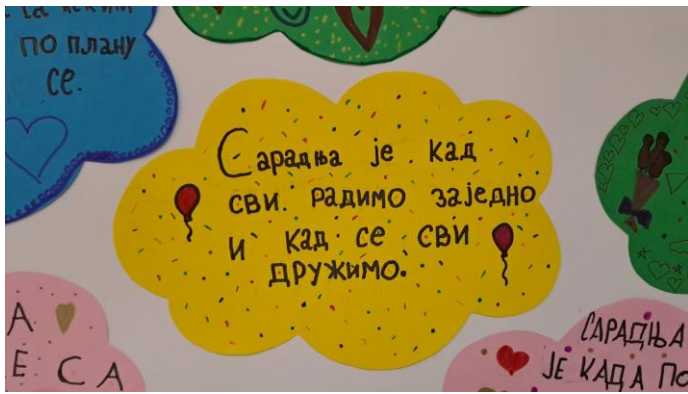 по плану
се.
Сарадња је кад
сви радимо заједно
и кад се сви
дружимо.
САРАДЊА
ЈЕ КАДА